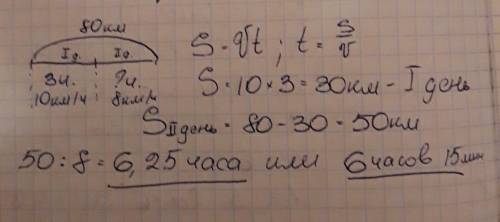 80км
Iд. Iд.
3ч. ?ч.
10км/ч 8км/ч
S = vt ; t = S/v
S = 10 × 3 = 30км - I день
S II день = 80 - 30 = 50км
50 : 8 = 6,25 часа или 6 часов 15 мин